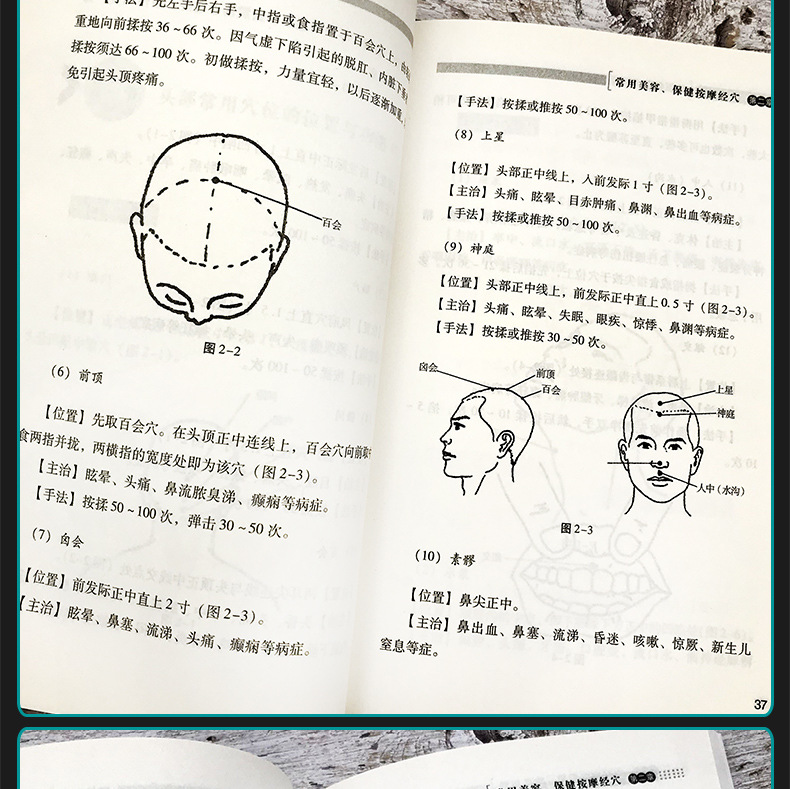 【手法】先左手后右手，中指或食指置于百会穴上，由
重地向前揉按36～66次。因气虚下陷引起的脱肛、内脏下
揉按须达66～100次。初做揉按，力量宜轻，以后逐渐加重，
免引起头顶疼痛。
百会
图2-2
（6）前顶
【位置】先取百会穴。在头顶正中连线上，百会穴向前
食两指并拢，两横指的宽度处即为该穴（图2-3）。
【主治】眩晕、头痛、鼻流脓臭涕、癫痫等病症。
【手法】按揉50～100次，弹击30～50次。
（7）囟会
【位置】前发际正中直上2寸（图2-3）。
【主治】眩晕、鼻塞、流涕、头痛、癫痫等病症。
常用美容、保健按摩经穴 第二章
【手法】按揉或推按50～100次。
（8）上星
【位置】头部正中线上，入前发际1寸（图2-3）。
【主治】头痛、眩晕、目赤肿痛、鼻渊、鼻出血等病症。
【手法】按揉或推按50～100次。
（9）神庭
【位置】头部正中线上，前发际正中直上0.5寸（图2-3）。
【主治】头痛、眩晕、失眠、眼疾、惊悸、鼻渊等病症。
【手法】按揉或推按30～50次。
囟会
前顶
百会
上星
神庭
人中（水沟）
图2-3
（10）素髎
【位置】鼻尖正中。
【主治】鼻出血、鼻塞、流涕、昏迷、咳嗽、惊厥、新生儿
窒息等症。
37
用美容、保健按摩经穴 第二章